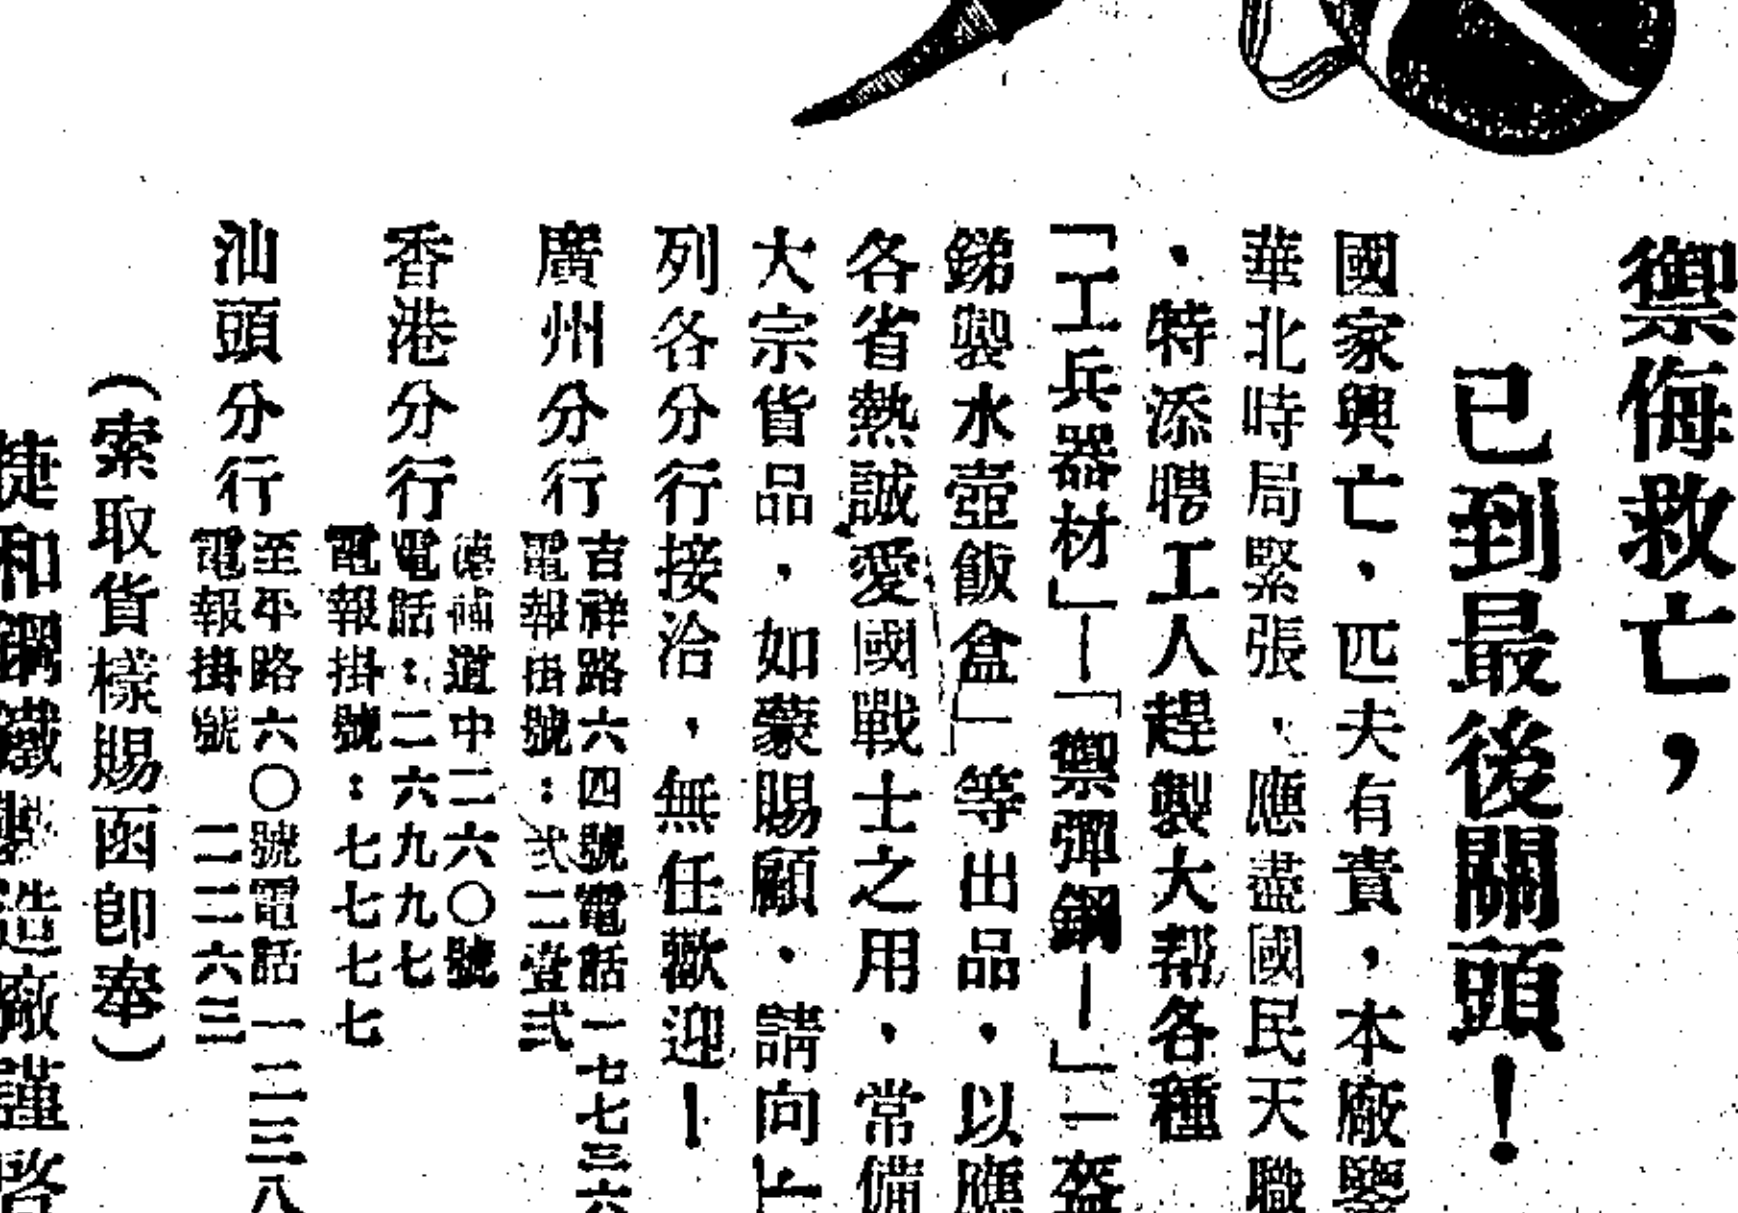 禦侮救亡，
已到最後關頭！
國家興亡，匹夫有責，本廠鑒
華北時局緊張，應盡國民天職
，特添聘工人趕製大帮各種
「工兵器材」—「禦彈鋼—」—盔
銻製水壺飯盒」等出品，以應
各省熱誠愛國戰士之用，常備
大宗貨品，如蒙賜顧，請向上
列各分行接洽，無任歡迎！
廣州分行
吉祥路六四號電話一七七三六
電報掛號：弍二壹弍
香港分行
德補道中二六〇號
電話：二六九九七
電報掛號：七七七七
汕頭分行
至平路六〇號電話一二三八
電報掛號 二二六三
（索取貨樣賜函卽奉）
捷和鋼鐵製造廠謹啓